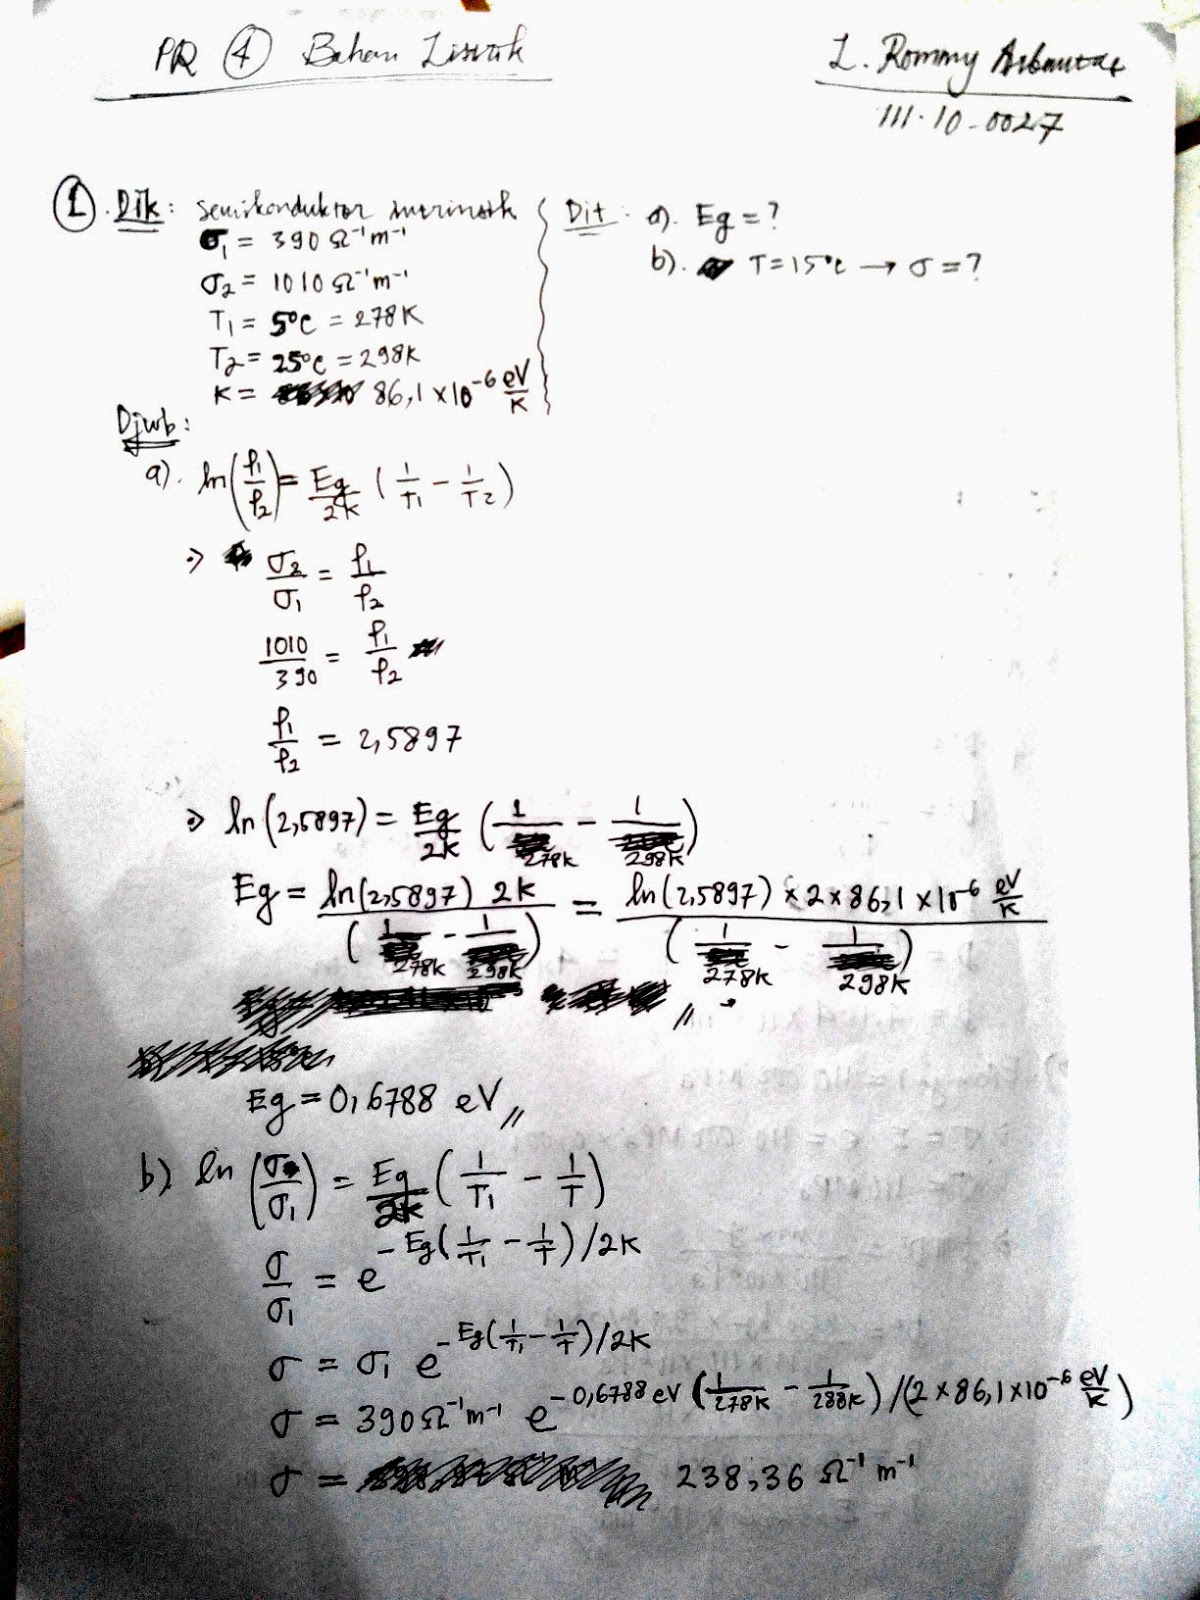 PR ④ Bahan Listrik
L. Rommy
111.10.0027
① . Dik : semikonduktor intrinsik
σ₁ = 390 Ω⁻¹m⁻¹
σ₂ = 1010 Ω⁻¹m⁻¹
T₁ = 5°C = 278K
T₂ = 25°C = 298K
K = 86,1 × 10⁻⁶ eV/K
Dit : a). Eg = ?
b). T = 15°C → σ = ?
Djwb :
a). ln(ρ₁/ρ₂) = Eg/2K (1/T₁ - 1/T₂)
σ₂/σ₁ = ρ₁/ρ₂
1010/390 = ρ₁/ρ₂
ρ₁/ρ₂ = 2,5897
ln(2,5897) = Eg/2K (1/278K - 1/298K)
Eg = ln(2,5897) 2K / (1/278K - 1/298K) = ln(2,5897) × 2 × 86,1 × 10⁻⁶ eV/K / (1/278K - 1/298K) //
Eg = 0,6788 eV //
b) ln (σ/σ₁) = Eg/2K (1/T₁ - 1/T)
σ/σ₁ = e^-Eg(1/T₁ - 1/T)/2K
σ = σ₁ e^-Eg(1/T₁ - 1/T)/2K
σ = 390 Ω⁻¹m⁻¹ e^-0,6788 eV (1/278K - 1/288K)/(2 × 86,1 × 10⁻⁶ eV/K)
σ = 238,36 Ω⁻¹ m⁻¹